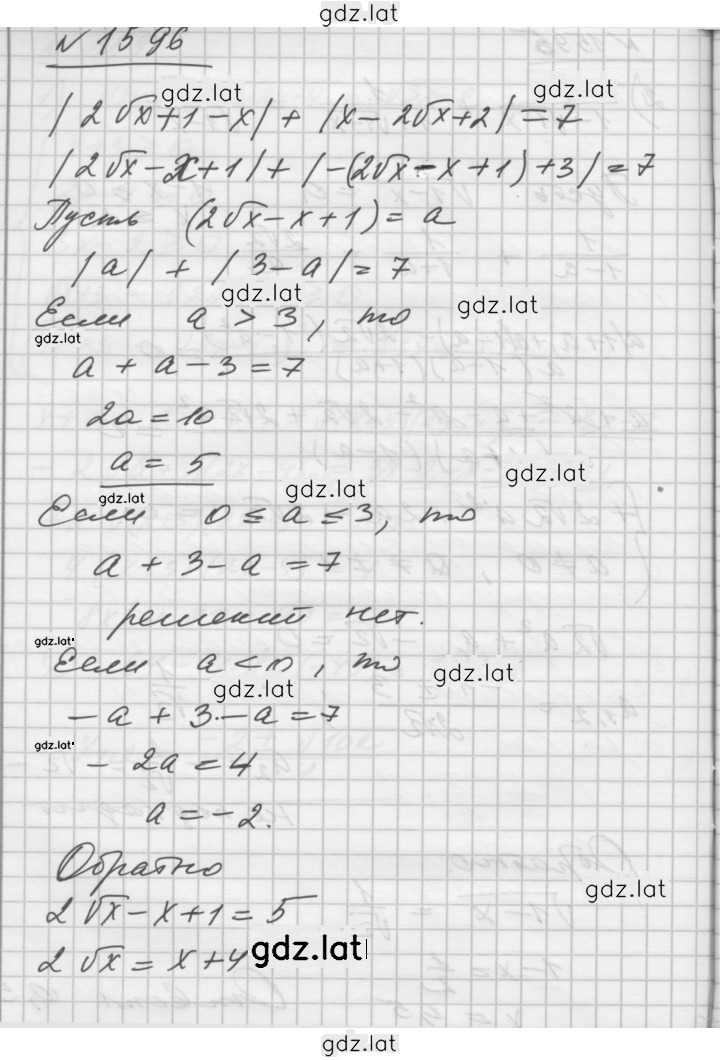 gdz.lat
N 1596
gdz.lat gdz.lat
|2√x+1-x| + |x-2√x+2| = 7
|2√x-x+1| + |-(2√x-x+1)+3| = 7
Пусть (2√x-x+1) = a
|a| + |3-a| = 7
gdz.lat gdz.lat
Если a > 3, то
gdz.lat
a + a - 3 = 7
2a = 10
a = 5
gdz.lat gdz.lat gdz.lat
Если 0 ≤ a ≤ 3, то
a + 3 - a = 7
решений нет.
gdz.lat
Если a < 0, то
gdz.lat gdz.lat
-a + 3 - a = 7
gdz.lat
- 2a = 4
a = -2.
Обратно
gdz.lat
2√x - x + 1 = 5
2√x = x + 4
gdz.lat
gdz.lat